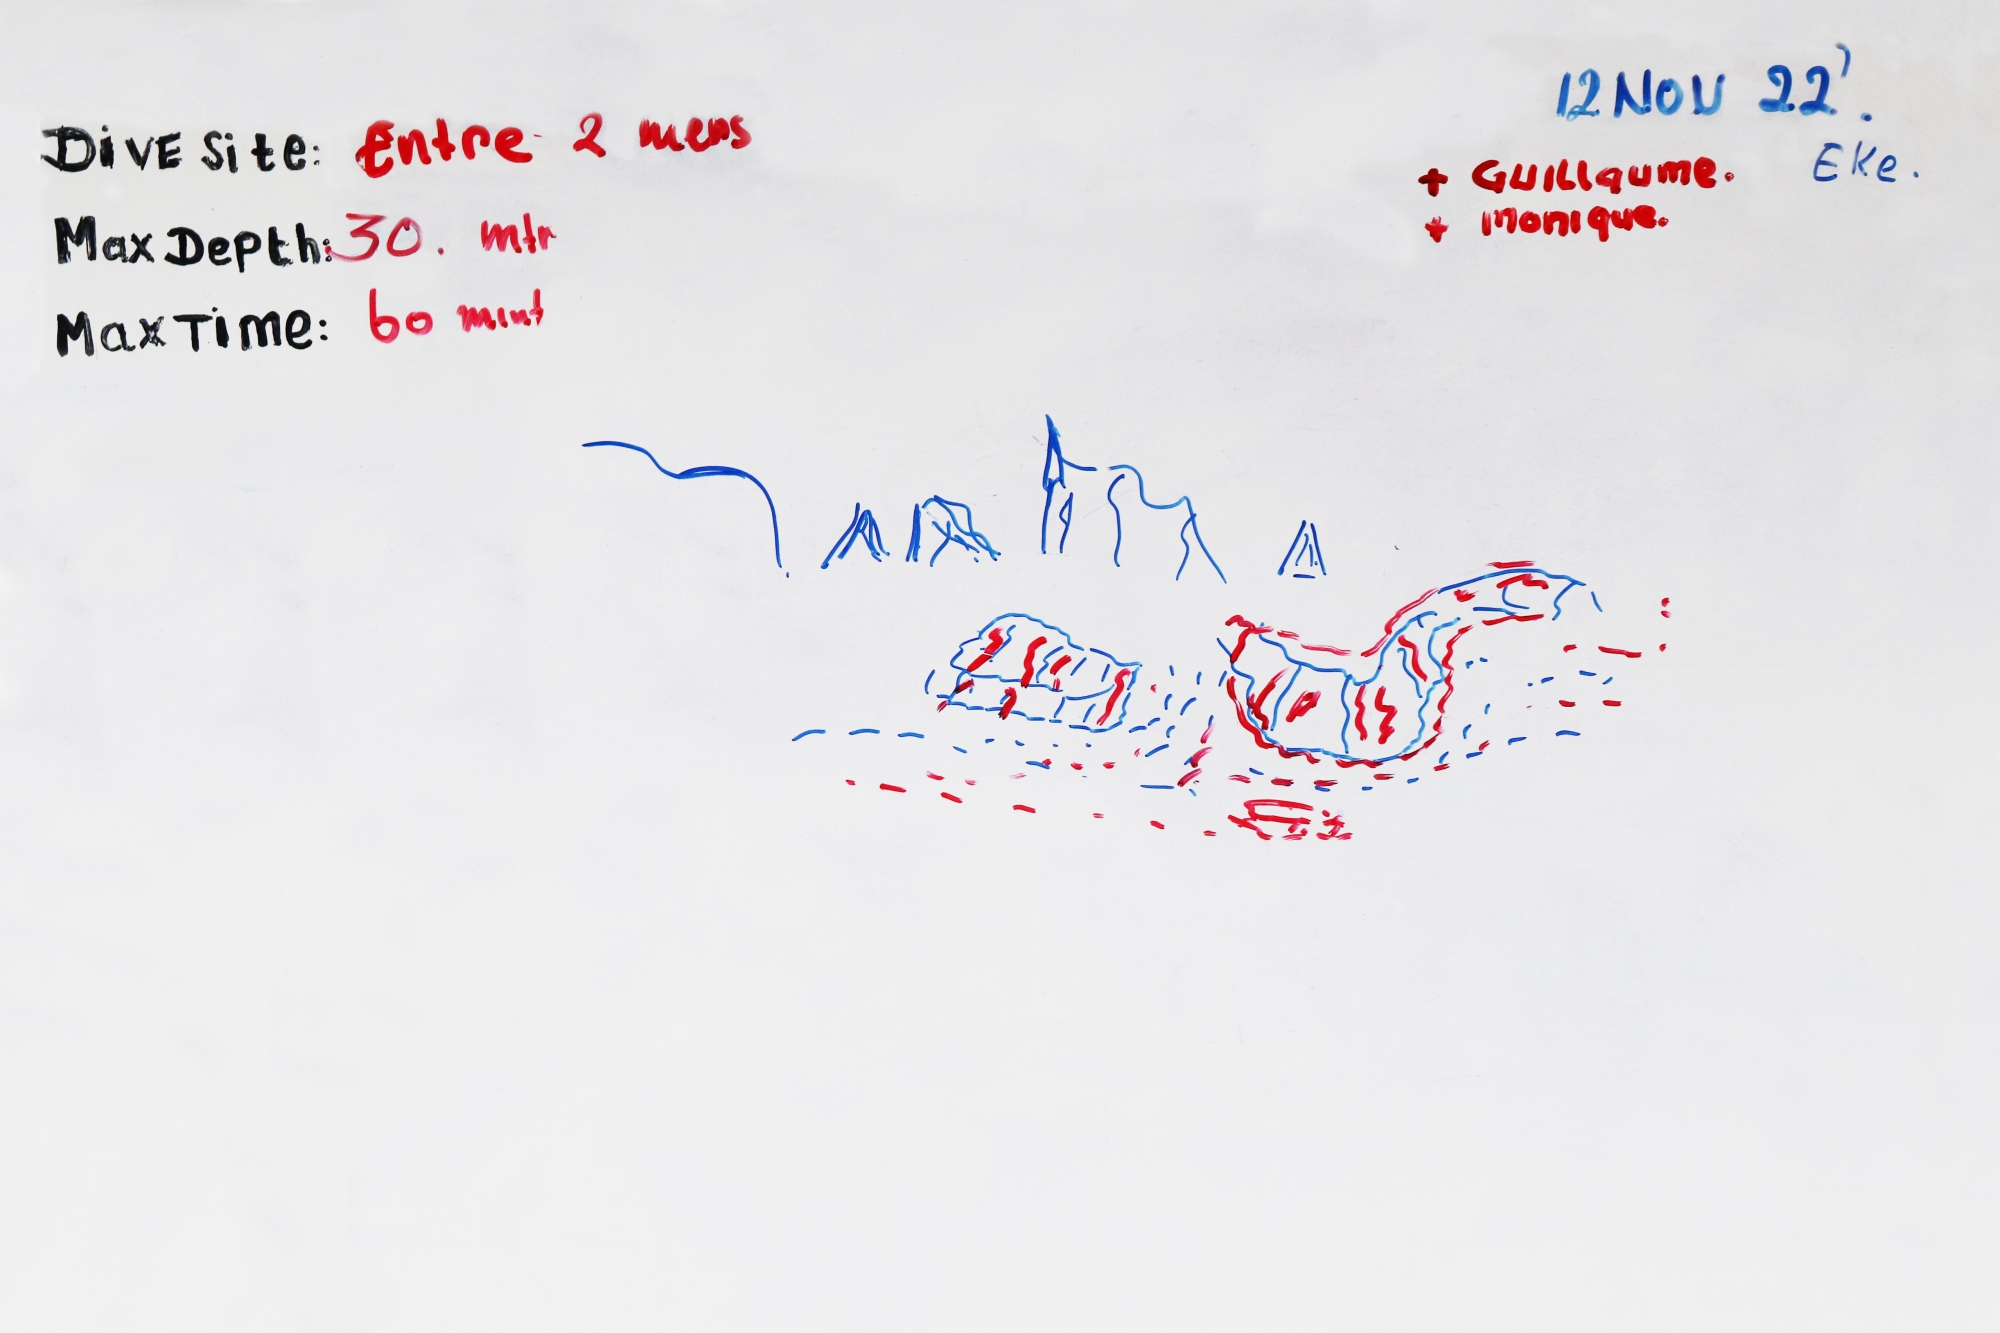 12 NOV 22'.
Dive Site: Entre 2 mers
+ Guillaume. Eke.
+ Monique.
Max Depth: 30. mtr
Max Time: 60 mint